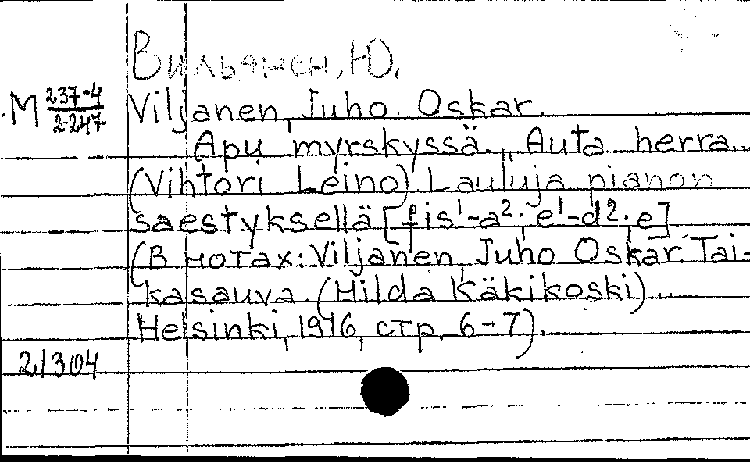 Вильянен, Ю.
М 237-4
2-247
Viljanen, Juho Oskar.
Apu myrskyssä. „Auta herra..
(Vihtori Leino) Lauluja pianon
säestyksellä [fis¹-a²; e¹-d²; e]
(В нотах: Viljanen, Juho Oskar. Tai-
kasauva. (Hilda Käkikoski)...
Helsinki, 1916, стр. 6-7).
21304